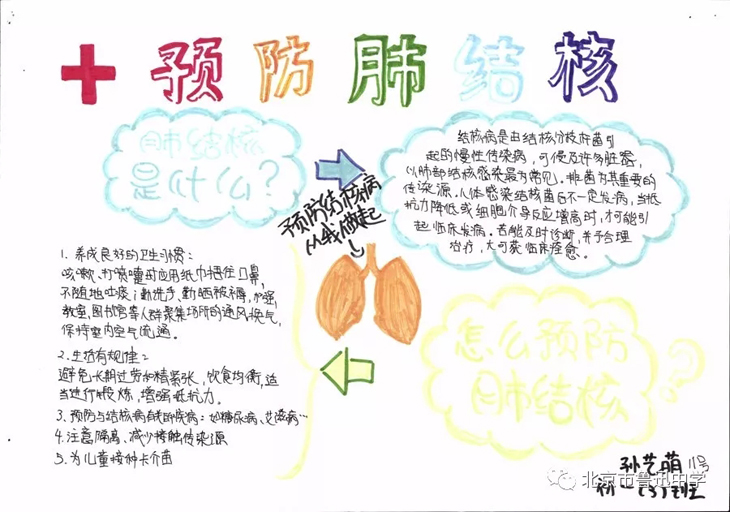 预防肺结核
肺结核
是什么?
结核病是由结核分枝杆菌引
起的慢性传染病,可侵及许多脏器,
以肺部结核感染最为常见。排菌为其重要的
传染源。人体感染结核菌后不一定发病,当抵
抗力降低或细胞介导反应增高时,才可能引
起临床发病。若能及时诊断,并予合理
治疗,大可获临床痊愈。
预防结核病
从我做起
1. 养成良好的卫生习惯:
咳嗽、打喷嚏时应用纸巾捂住口鼻,
不随地吐痰;勤洗手、勤晒被褥,加强
教室,图书馆等人群聚集场所的通风换气,
保持室内空气流通。
2. 生活有规律:
避免长期过劳和精紧张,饮食均衡,适
当进行锻炼,增强抵抗力。
3. 预防与结核病有关的疾病:如糖尿病、艾滋病…
4. 注意隔离、减少接触传染源
5. 为儿童接种卡介苗
怎么预防
肺结核?
孙艺萌 11号
初一(3)班
北京市鲁迅中学